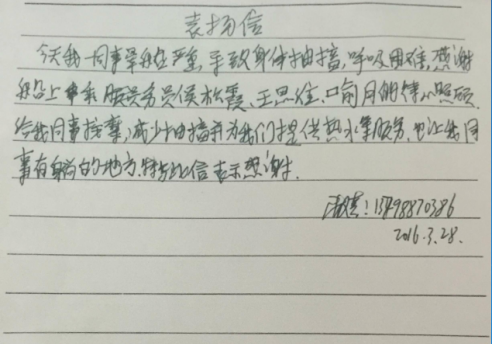 表扬信
今天我一同事晕船严重,手致身体抽搐,呼吸困难,感谢
船上服务员侯松霞、王思佳、周月明精心照顾,
给我同事按摩,减少抽搐并为我们提供热水等服务,也让我同
事有躺的地方,特此信表示感谢。
2016.3.28.